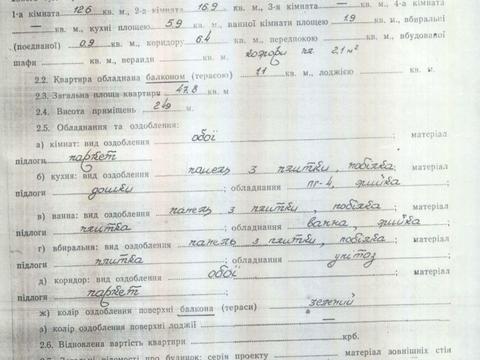 1-а кімната 12,6 кв. м., 2-а кімната 16,9 кв. м., 3-я кімната — кв. м., 4-а кімната
— кв. м., кухні площею 5,9 кв. м., ванної кімнати площею 1,9 кв. м., вбиральні
(поєднаної) 0,9 кв. м., коридору 6,4 кв. м., передпокою — кв. м., вбудованої
шафи — кв. м., веранди кв. м. 2,1 м²
2.2. Квартира обладнана балконом (терасою) 1,1 кв. м., лоджією кв. м
2.3. Загальна площа квартири 47,8 кв. м
2.4. Висота приміщень м
2.5. Обладнання та оздоблення:
а) кімнат: вид оздоблення обої ; матеріал
підлоги паркет
б) кухня: вид оздоблення панель з плитки, побілка ; матеріал
підлоги дошки ; обладнання пг-4, мийка
в) ванна: вид оздоблення панель з плитки, побілка ; матеріал
підлоги плитка ; обладнання ванна, мийка
г) вбиральня: вид оздоблення панель з плитки, побілка ; матеріал
підлоги плитка ; обладнання унітаз
д) коридор: вид оздоблення обої ; матеріал
підлоги паркет
ж) колір оздоблення поверхні балкона (тераси) зелений
з) колір оздоблення поверхні лоджії —
2.6. Відновлена вартість квартири крб.
відомості про будинок: серія проекту матеріал зовнішніх стін